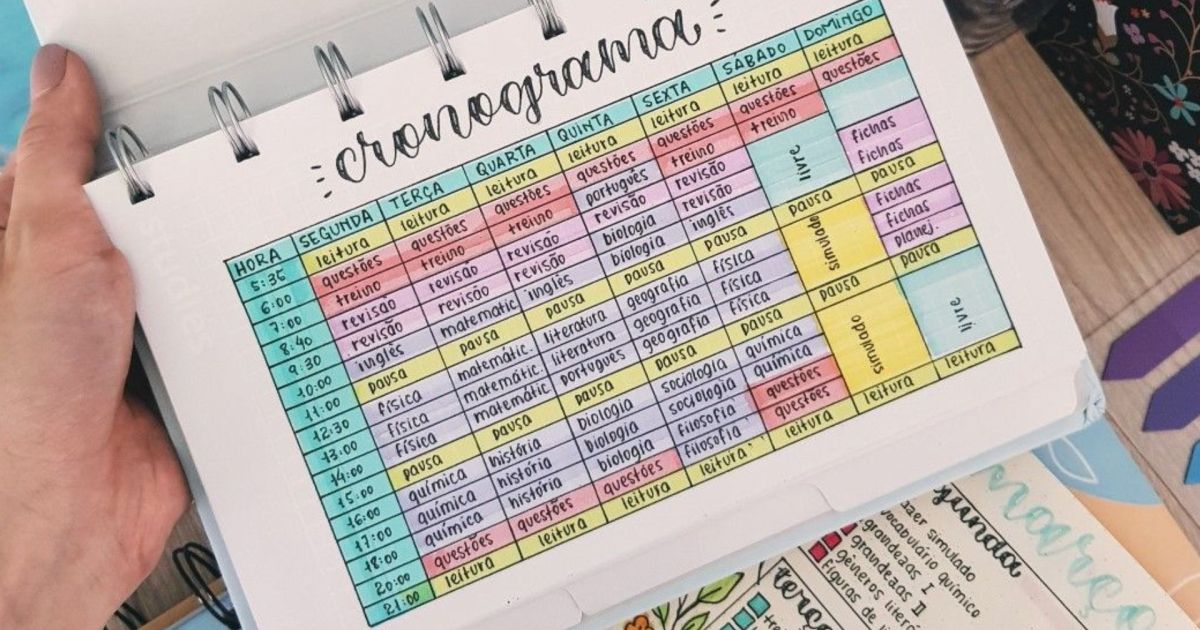 cronograma
HORA SEGUNDA TERÇA QUARTA QUINTA SEXTA SÁBADO DOMINGO
5:35 leitura leitura leitura leitura leitura leitura leitura
6:00 questões questões questões questões questões questões questões
7:00 treino treino treino português treino treino
8:40 revisão revisão revisão revisão revisão livre
9:30 revisão revisão revisão biologia revisão fichas
10:00 inglês matematic inglês biologia inglês fichas
11:00 pausa pausa pausa pausa pausa pausa pausa
12:30 física matemátic. literatura geografia física simulado fichas
13:00 física matemátic. literatura geografia física fichas
14:00 física matemátic. português geografia física planej.
15:00 pausa pausa pausa pausa pausa pausa pausa
16:00 química história biologia sociologia química simulado livre
17:00 química história biologia sociologia química
18:00 química história biologia filosofia questões
20:00 questões questões questões filosofia questões
21:00 leitura leitura leitura leitura leitura leitura leitura
março
vocabulário químico
grandezas I
grandezas II
terça